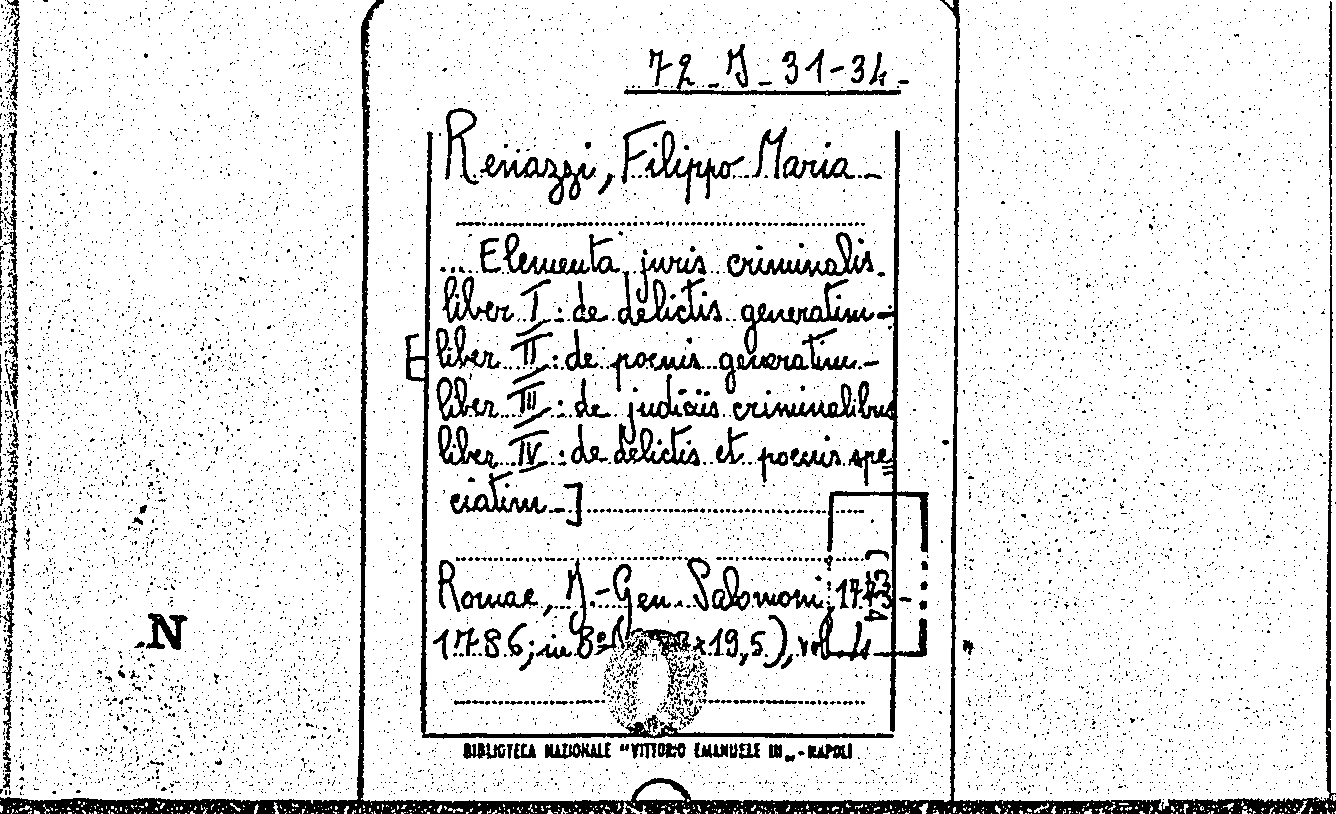 72-J-31-34-
Renazzi, Filippo Maria-
... Elementa juris criminalis.
[liber I: de delictis generatim-
liber II: de poenis generatim-
liber III: de judiciis criminalibus
liber IV: de delictis et poenis spe
ciatim-]
Romae, J.-Gen. Salomoni,
N
1786; in 8° 19,5), vol. 4
BIBLIOTECA NAZIONALE "VITTORIO EMANUELE III„ - NAPOLI